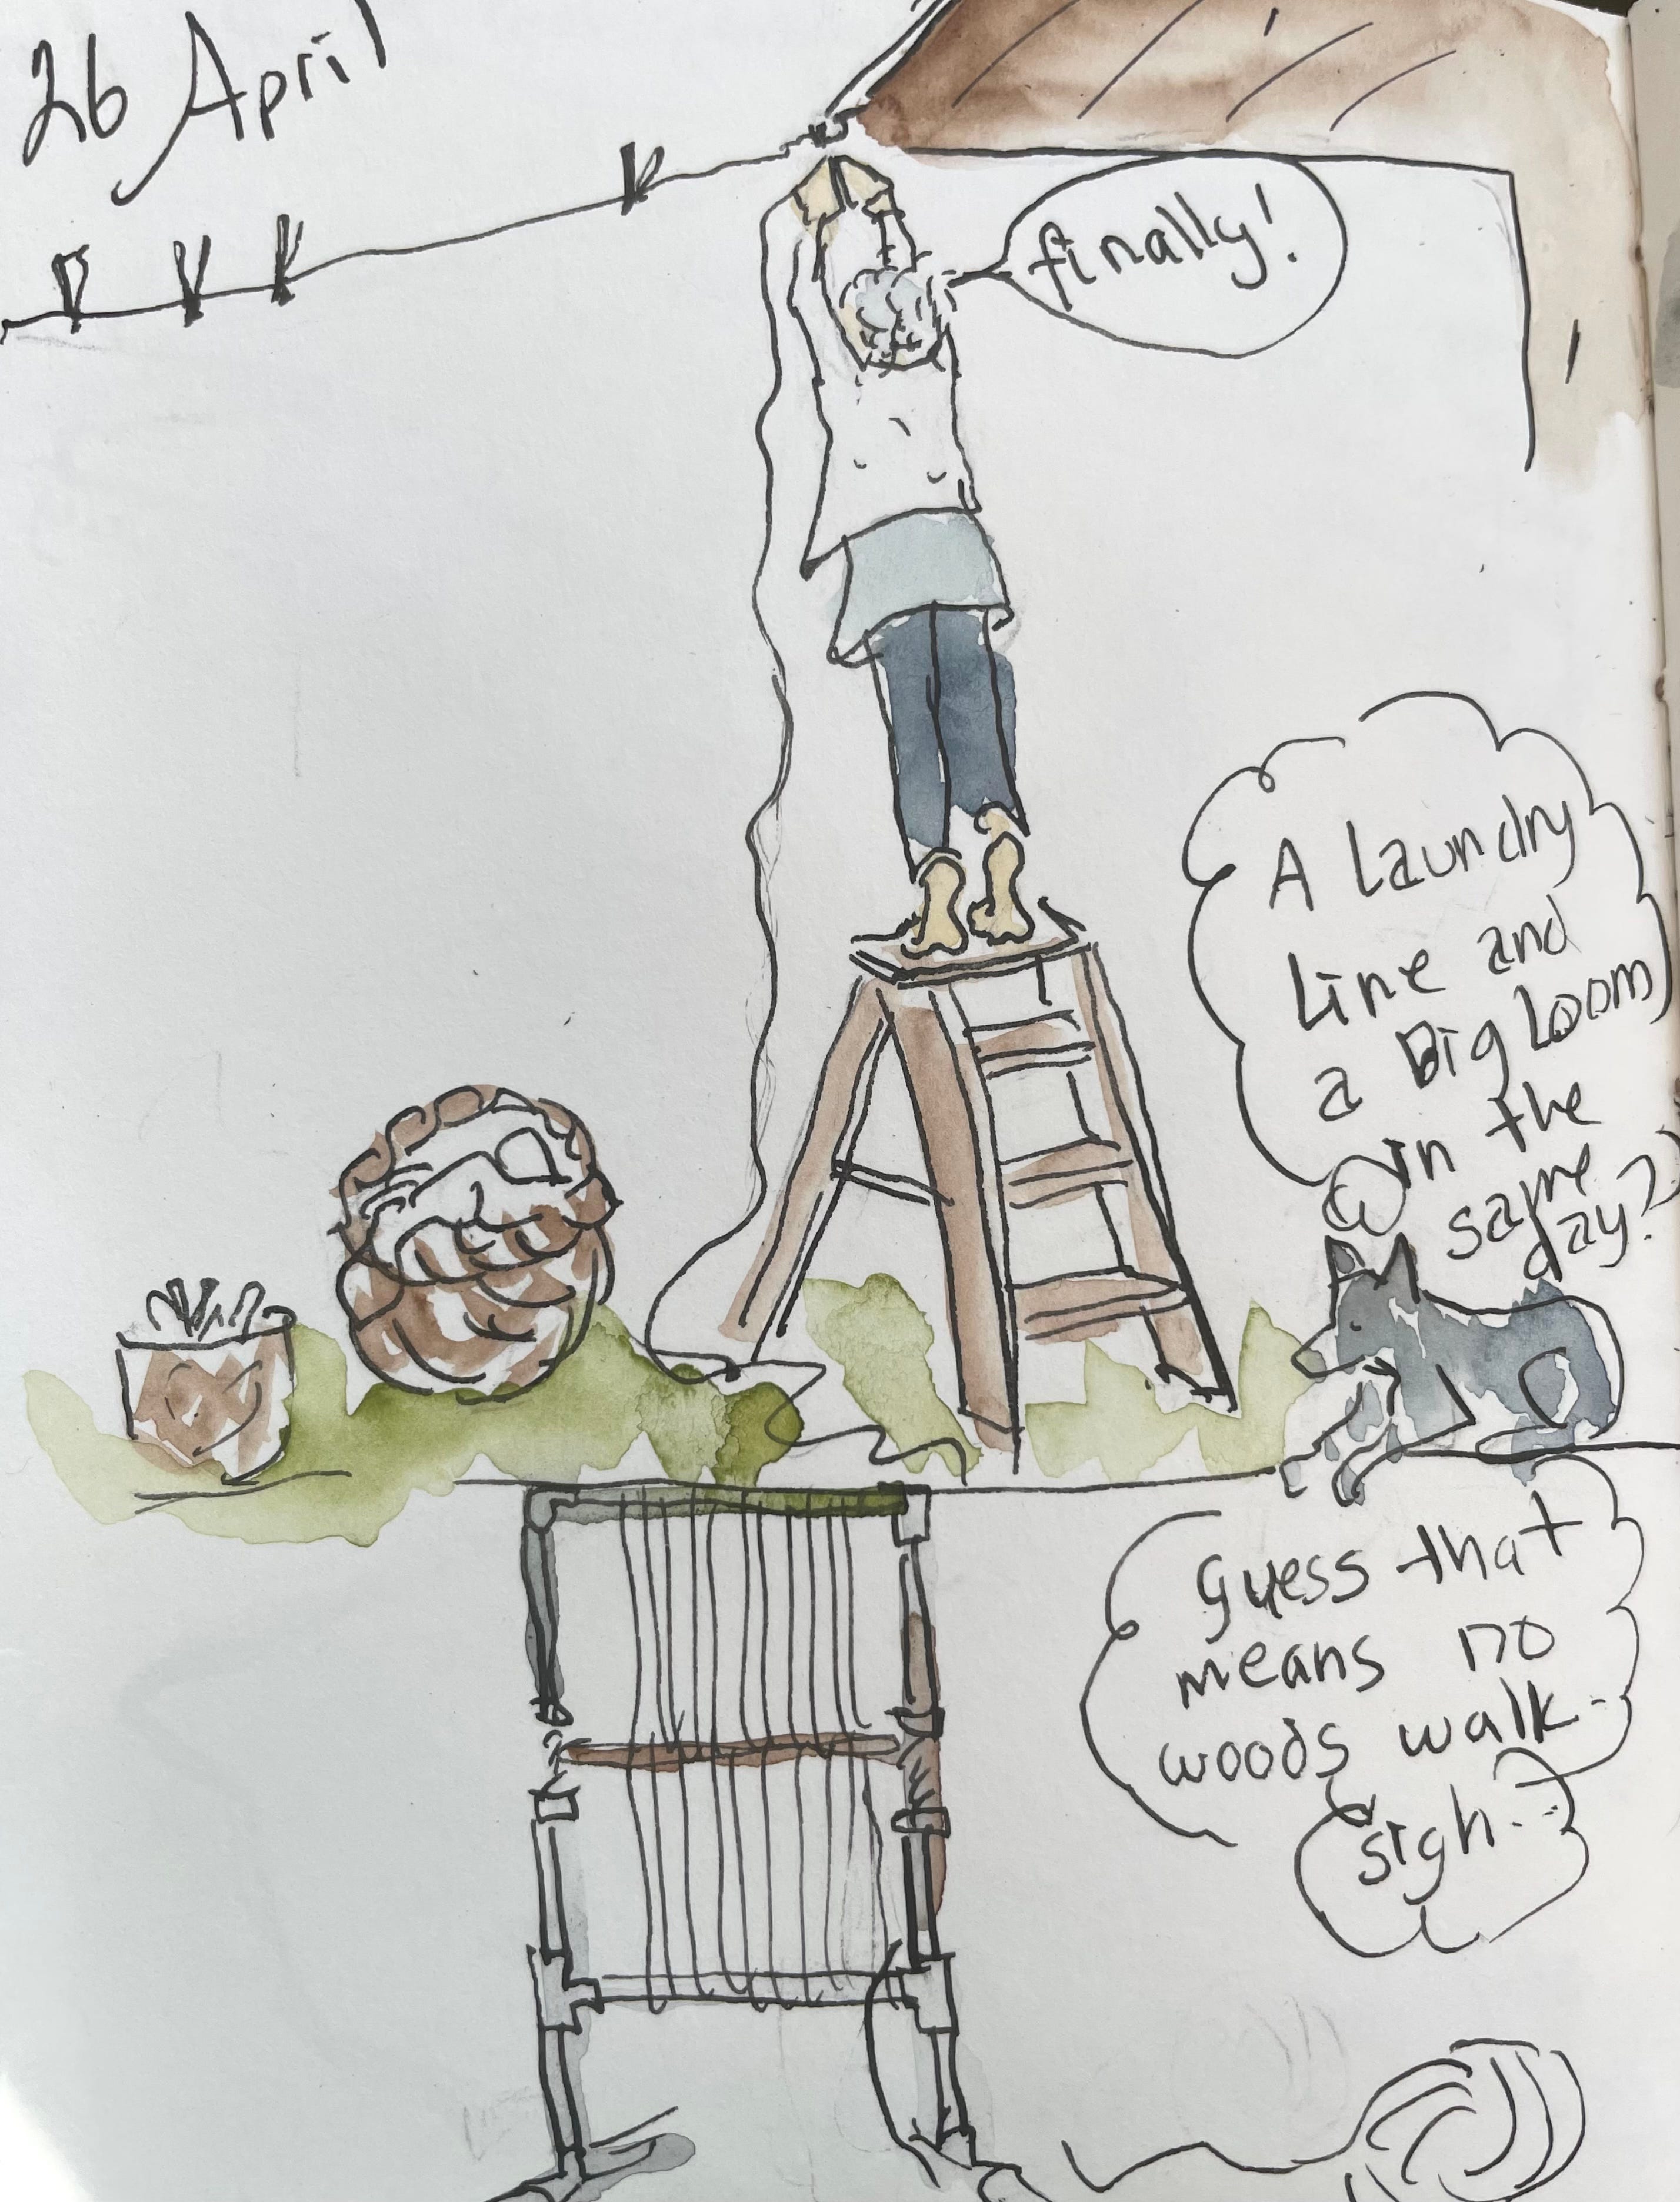 26 April
finally!
A Laundry
Line and
a Big Loom
in the
same
day?
Guess that
means no
woods walk.
sigh.